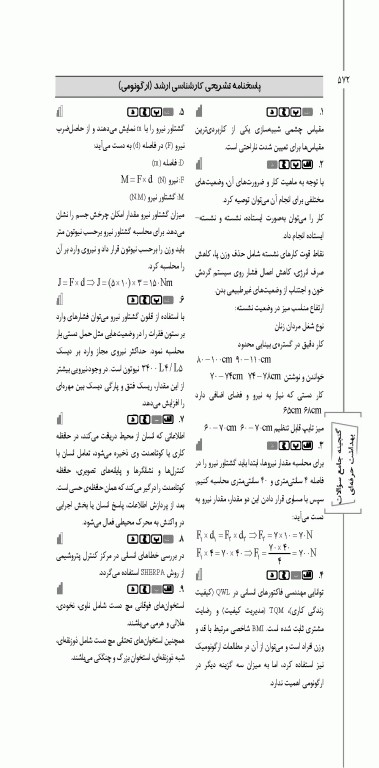 ۵۷۲
پاسخنامه تشریحی کارشناسی ارشد (ارگونومی)
۱.
مقیاس چشمی شبیه‌سازی یکی از کاربردی‌ترین
مقیاس‌ها برای تعیین شدت ناراحتی است.
۲.
با توجه به ماهیت کار و ضرورت‌های آن، وضعیت‌های
مختلفی برای انجام آن می‌توان توصیه کرد.
کار را می‌توان به‌صورت ایستاده، نشسته و نشسته-
ایستاده انجام داد.
نقاط قوت کارهای نشسته شامل حذف وزن پا، کاهش
صرف انرژی، کاهش اعمال فشار روی سیستم گردش
خون و اجتناب از وضعیت‌های غیرطبیعی بدن
ارتفاع مناسب میز در وضعیت نشسته:
نوع شغل مردان زنان
کار دقیق در گستره‌ی بینایی محدود
۸۰-۱۰۰cm ۹۰-۱۱۰cm
خواندن و نوشتن ۷۴-۷۸cm ۷۰-۷۴cm
کار دستی که نیاز به نیرو و فضای اضافی دارد
۶۸cm ۶۵cm
میز تایپ قابل تنظیم ۶۰-۷۰cm ۶۰-۷۰cm
۳.
برای محاسبه مقدار نیروها، ابتدا باید گشتاور نیرو را در
فاصله ۴ سانتی‌متری و ۴۰ سانتی‌متری محاسبه کنیم.
سپس با مساوی قرار دادن این دو مقدار، مقدار نیرو به
دست می‌آید:
F₁ × d₁ = F₂ × d₂ ⇒ F₂ = ۷ × ۱۰ = ۷۰ N
F₁ × ۴ = ۷۰ × ۴۰ ⇒ F₁ = ۷۰ × ۴۰ / ۴ = ۷۰۰ N
۴.
توانایی مهندسی فاکتورهای انسانی در QWL (کیفیت
زندگی کاری)، TQM (مدیریت کیفیت) و رضایت
مشتری ثابت شده است. BMI شاخصی مرتبط با قد و
وزن افراد است و می‌توان از آن در مطالعات ارگونومیک
نیز استفاده کرد، اما به میزان سه گزینه دیگر در
ارگونومی اهمیت ندارد.
۵.
گشتاور نیرو را با m نمایش می‌دهند و از حاصل‌ضرب
نیرو (F) در فاصله (d) به دست می‌آید:
D: فاصله (m)
F: نیرو (N) M = F × d
M: گشتاور نیرو (N.M)
میزان گشتاور نیرو مقدار امکان چرخش جسم را نشان
می‌دهد. برای محاسبه گشتاور نیرو برحسب نیوتون متر
باید وزن را برحسب نیوتون قرار داد و نیروی وارد بر آن
را محاسبه کرد.
J = F × d ⇒ J = (۵ × ۱۰) × ۳ = ۱۵۰ Nm
۶.
با استفاده از قانون گشتاور نیرو می‌توان فشارهای وارد
بر ستون فقرات را در وضعیت‌هایی مثل حمل دستی بار
محاسبه نمود. حداکثر نیروی مجاز وارد بر دیسک
L۴/L۵ ۳۴۰۰ نیوتون است. در وجود نیرویی بیشتر
از این مقدار، ریسک فتق و پارگی دیسک بین مهره‌ای
را افزایش می‌دهد.
۷.
اطلاعاتی که انسان از محیط دریافت می‌کند، در حافظه
کاری یا کوتاه‌مدت وی ذخیره می‌شود، تعامل انسان با
کنترل‌ها و نشانگرها و پایانه‌های تصویری، حافظه
کوتاه‌مدت را درگیر می‌کند که همان حافظه‌ی حسی است.
بعد از پردازش اطلاعات، پاسخ انسان یا بخش اجرایی
در واکنش به محرک محیطی فعال می‌شود.
۸.
در بررسی خطاهای انسانی در مرکز کنترل پتروشیمی
از روش SHERPA استفاده می‌گردد.
۹.
استخوان‌های فوقانی مچ دست شامل ناوی، نخودی،
هلالی و هرمی می‌باشند.
همچنین استخوان‌های تحتانی مچ دست شامل ذوزنقه‌ای،
شبه ذوزنقه‌ای، استخوان بزرگ و چنگکی می‌باشند.
گنجینه جامع سوالات
بهداشت حرفه‌ای